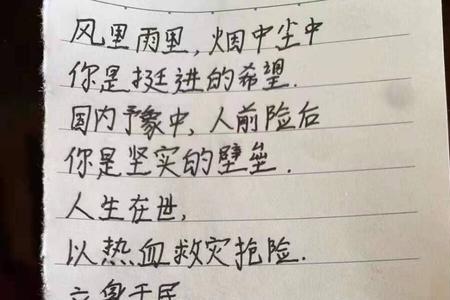 风里雨里，烟中尘中
你是挺进的希望.
国内豫中，人前险后
你是坚实的壁垒.
人生在世,
以热血救灾抢险.
立身于民